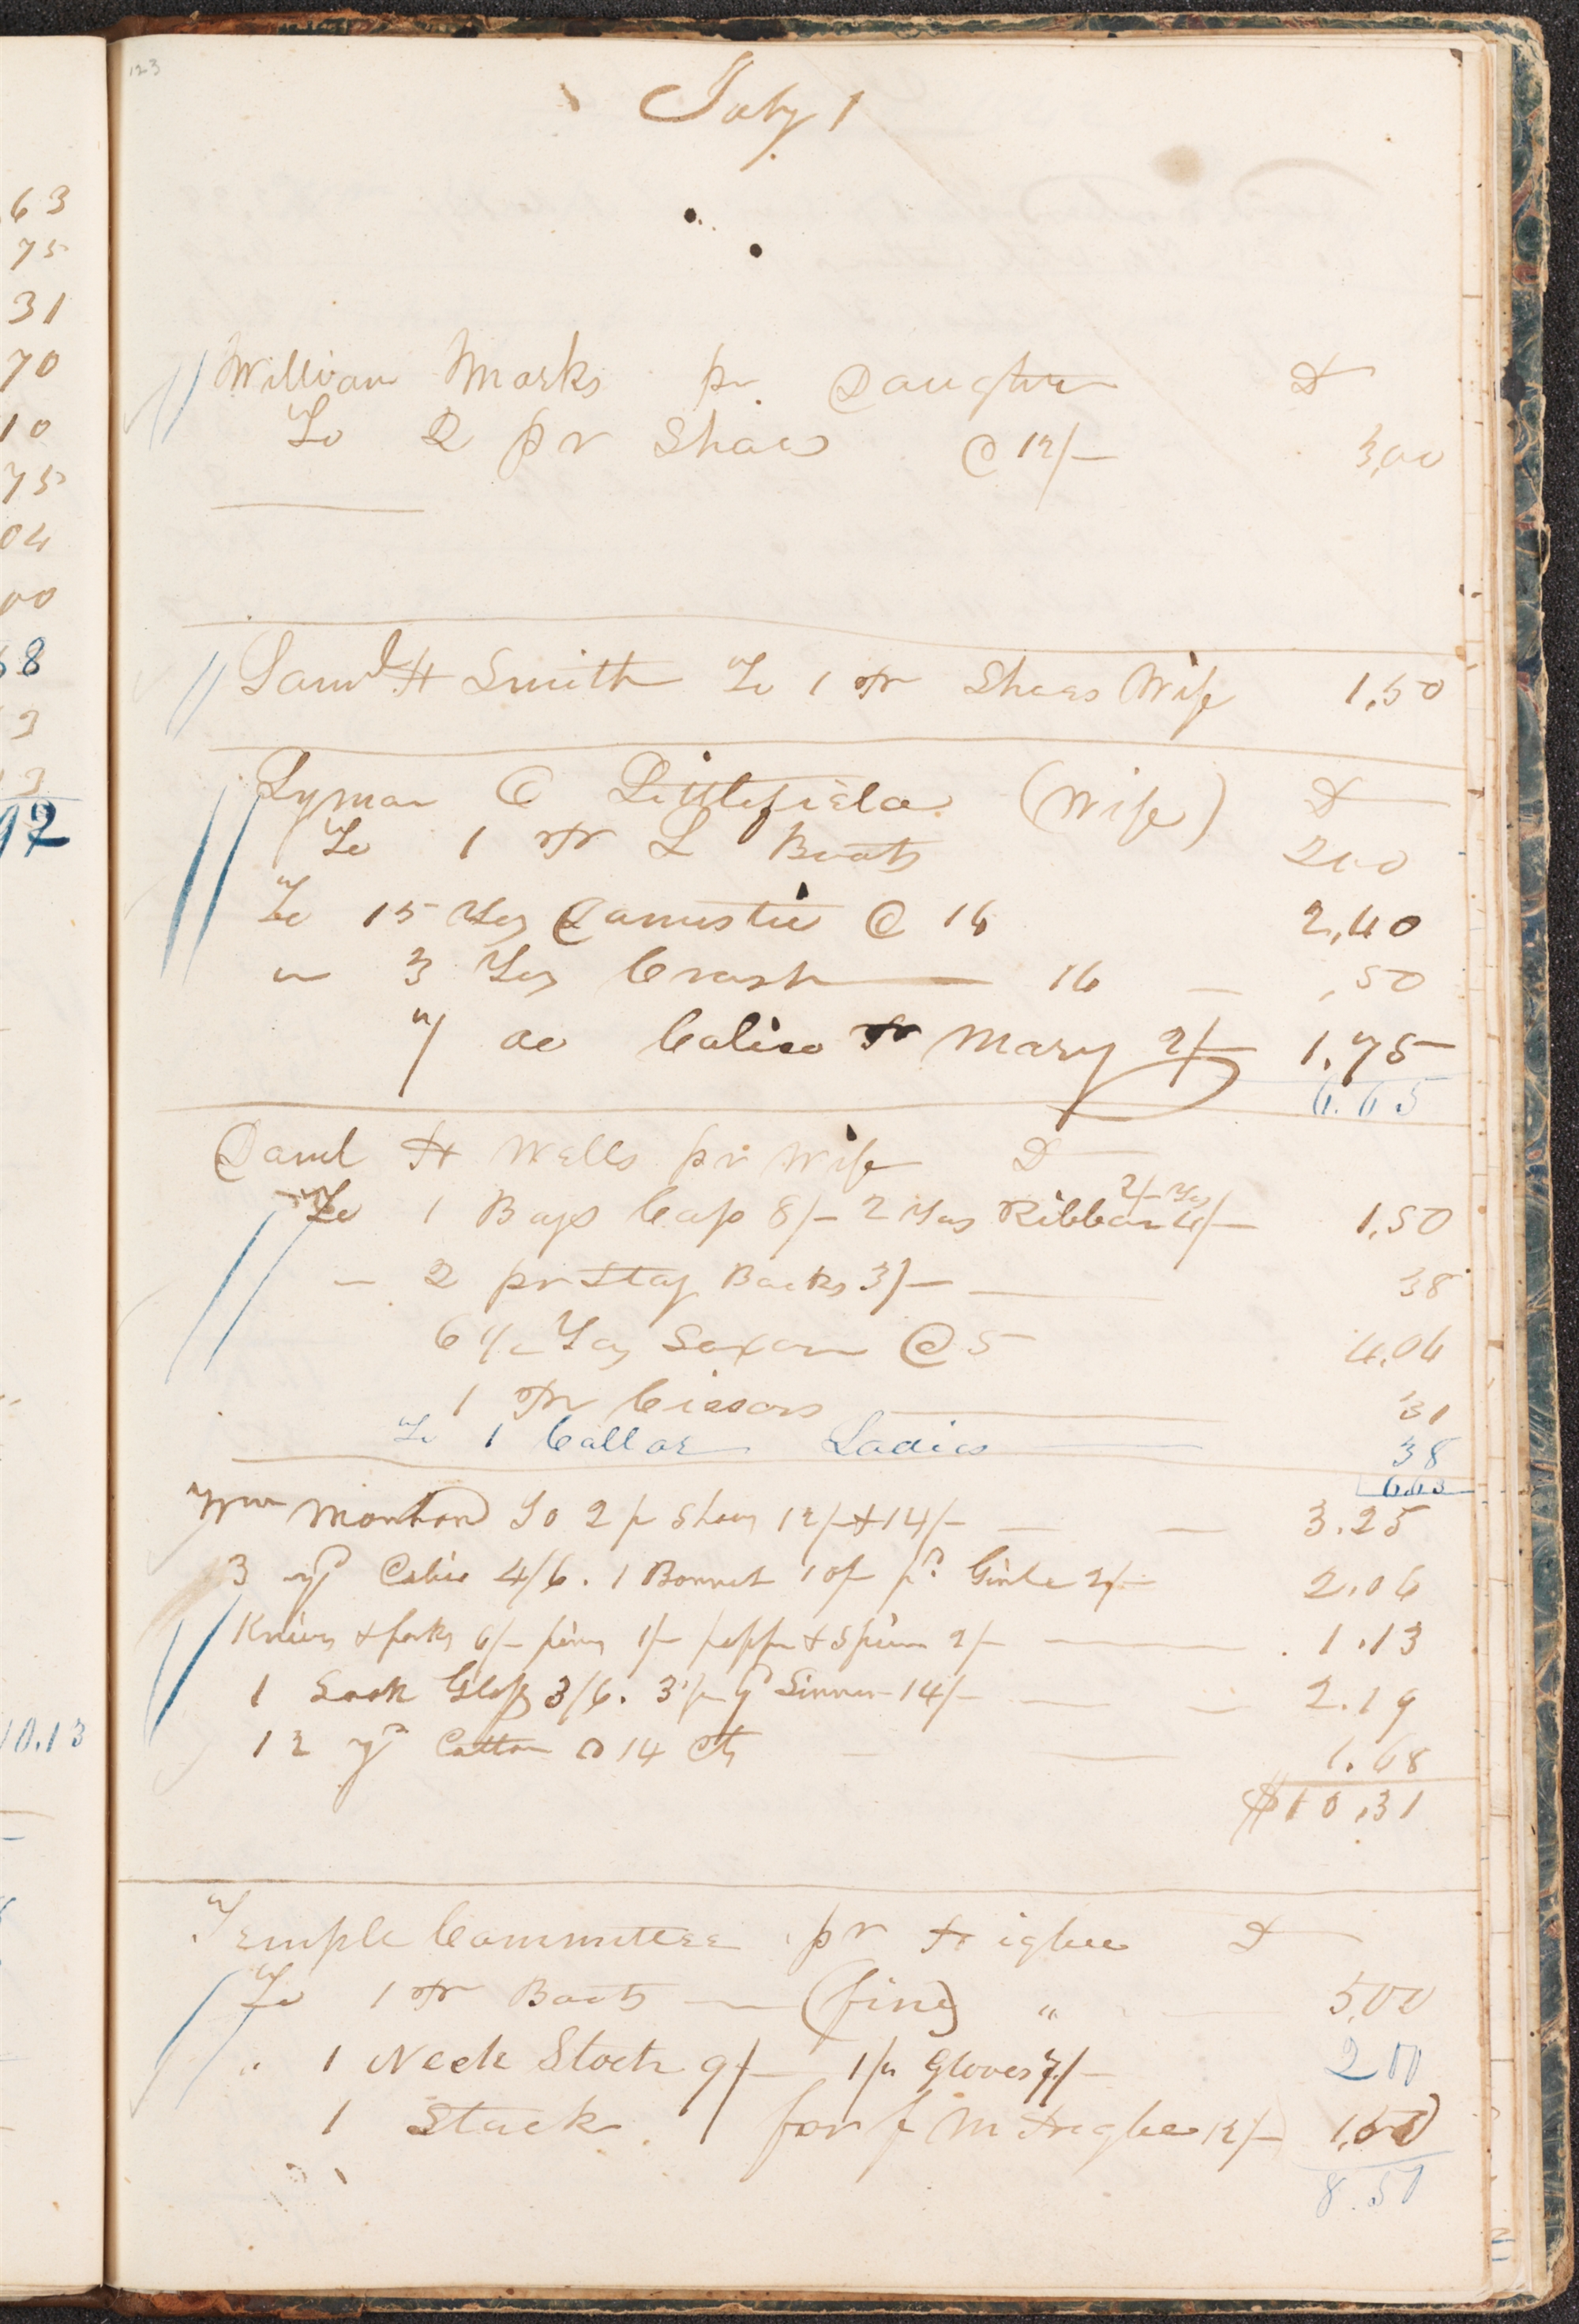 123
July 1
63
75
31
70
10
75
04
00
68
3
92
10.13
William Marks pr. Daughter D
To 2 pr Shoes @ 12/– 3,00
Saml H Smith To 1 pr Shoes Wife 1,50
Lyman O Littlefield (Wife) D
To 1 pr L Boots 200
To 15 Yds Domestic @ 16 2,40
" 3 Yds Crash — 16 — ,50
7 do Calico pr Mary 2/– 1,75
6.65
Danl H Wells pr Wife D
To 1 Boys Cap 8/– 2 Yds Ribbon 2/– Yd 4/– 1,50
– 2 pr Stay Backs 3/– 38
6 1/2 Yds Saxon @ 5 4,06
1 pr Cissors 31
To 1 Collar Ladies 38
6.63
Wm To 2 pr Shoes 12/– + 14/– — — 3.25
3 yds Calico 4/6. 1 Bonnet 10/– 2/– 2.06
Knives & forks 6/– pins 1/– 2/– — 1.13
1 Look Glass 3/6. 3 1/2 yd 14/– — — 2.19
12 yds Cotton @ 14 cts — — 1.68
$10.31
Temple Committee pr Higbee D
To 1 pr Boots — (fine) " 5,00
" 1 Neck Stock 9/– 1 pr Gloves 7/– 2 00
1 Stock for J M Higbee 12/– 1,50
8.50